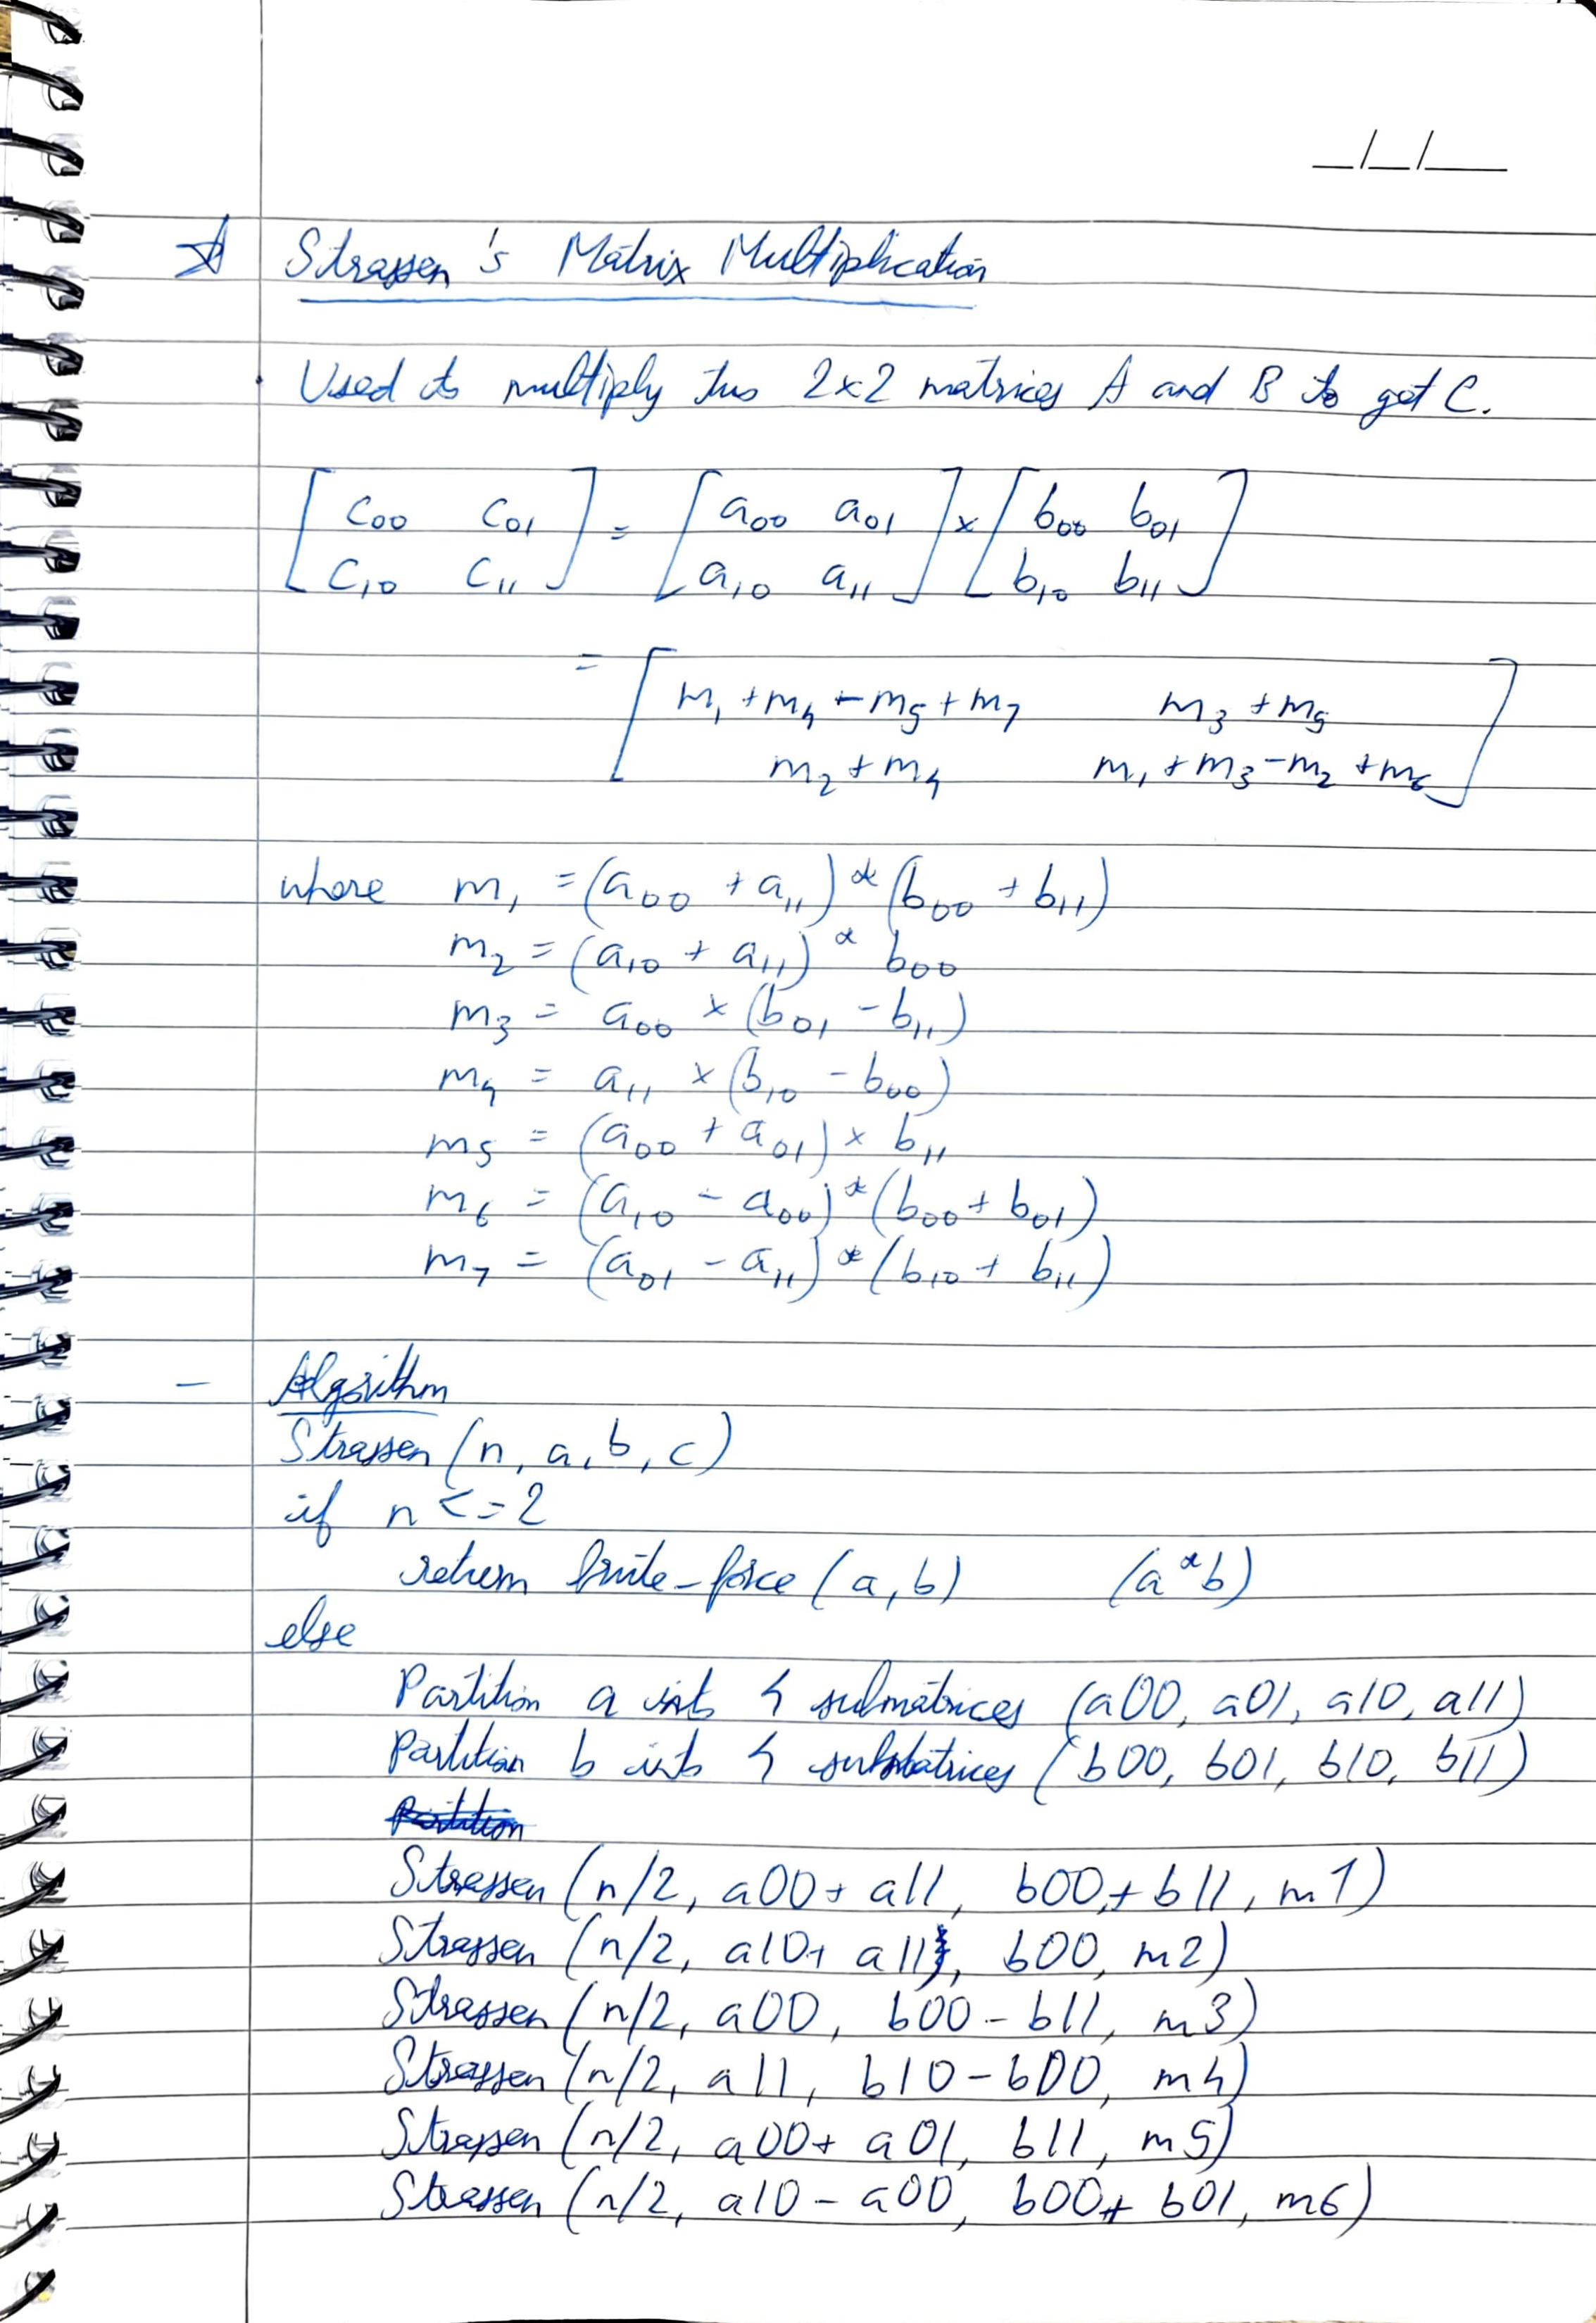 _/_/__
☆ Strassen's Matrix Multiplication
. Used to multiply two 2x2 matrices A and B to get C.
[ c00 c01 ] = [ a00 a01 ] x [ b00 b01 ]
[ c10 c11 ] [ a10 a11 ] [ b10 b11 ]
= [ m1 + m4 - m5 + m7 m3 + m5 ]
[ m2 + m4 m1 + m3 - m2 + m6 ]
where m1 = (a00 + a11) * (b00 + b11)
m2 = (a10 + a11) * b00
m3 = a00 x (b01 - b11)
m4 = a11 x (b10 - b00)
m5 = (a00 + a01) x b11
m6 = (a10 - a00) * (b00 + b01)
m7 = (a01 - a11) * (b10 + b11)
- Algorithm
Strassen (n, a, b, c)
if n <= 2
return brute-force (a, b) (a * b)
else
Partition a into 4 submatrices (a00, a01, a10, a11)
Partition b into 4 submatrices (b00, b01, b10, b11)
Partition
Strassen (n/2, a00 + a11, b00 + b11, m1)
Strassen (n/2, a10 + a11, b00, m2)
Strassen (n/2, a00, b00 - b11, m3)
Strassen (n/2, a11, b10 - b00, m4)
Strassen (n/2, a00 + a01, b11, m5)
Strassen (n/2, a10 - a00, b00 + b01, m6)